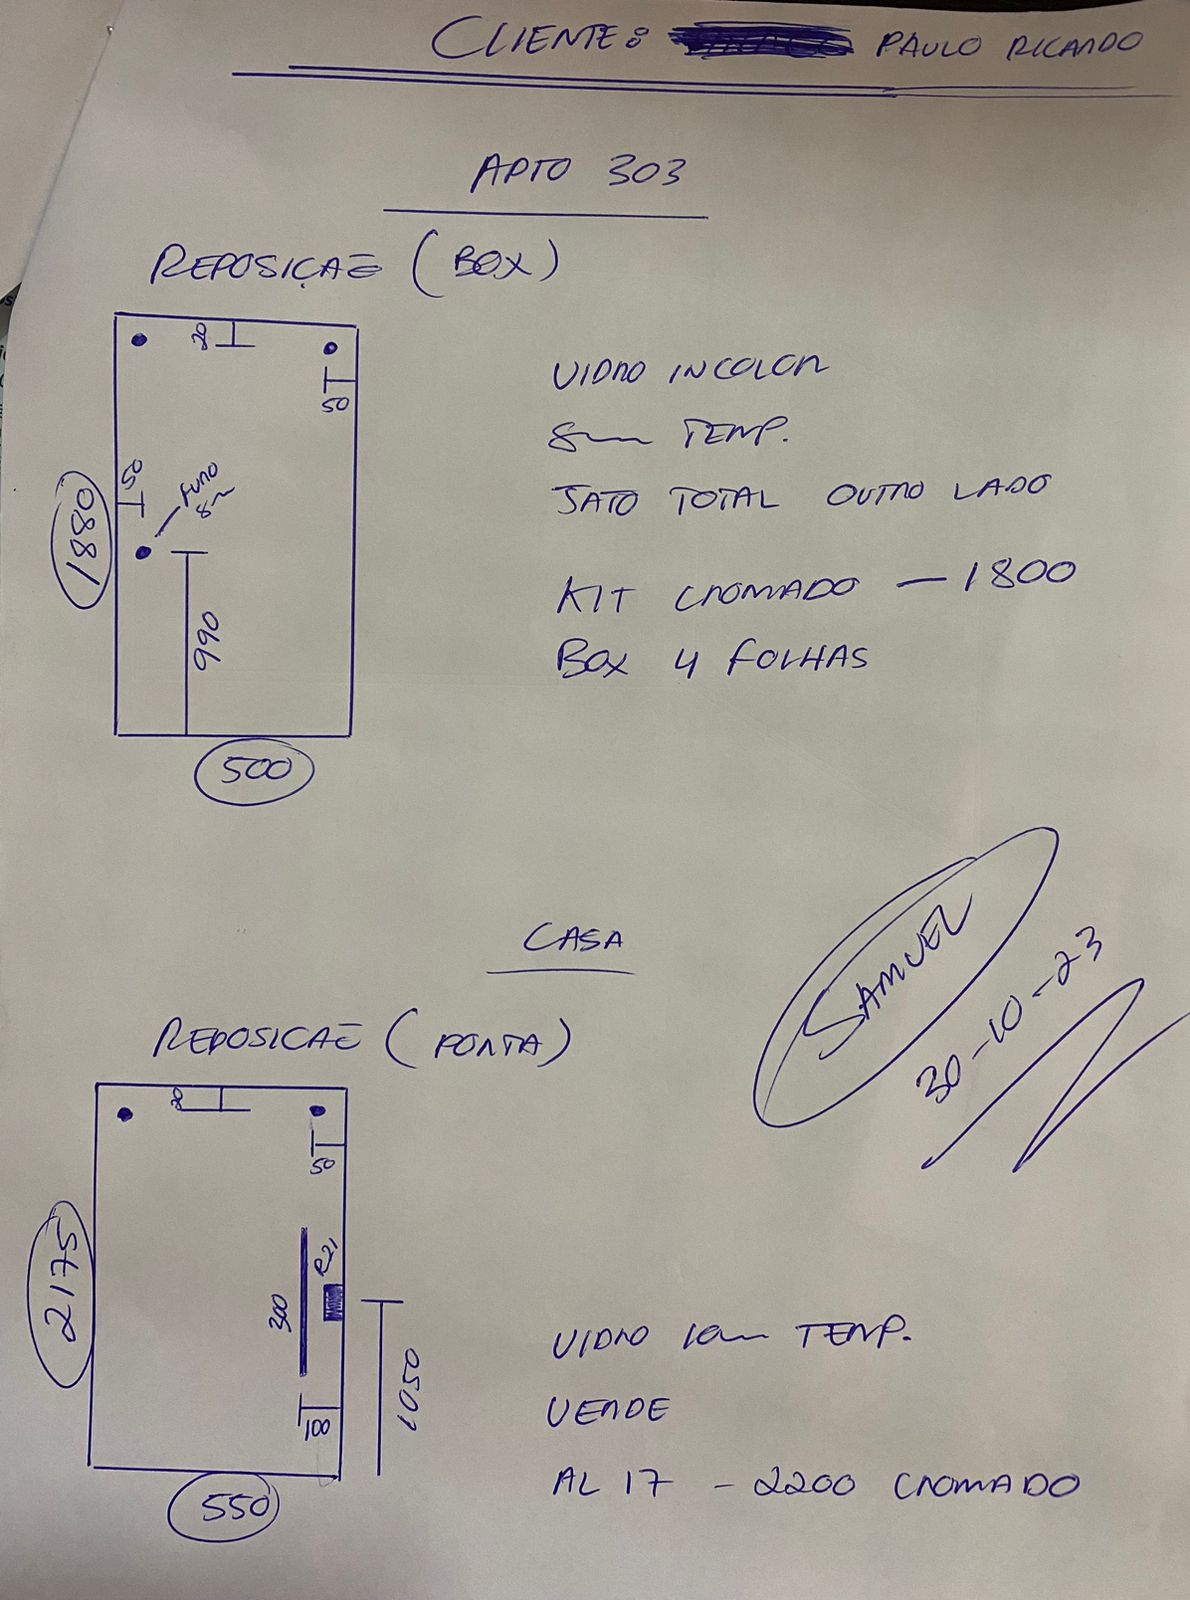 CLIENTE: PAULO RICARDO
APTO 303
REPOSIÇAE (BOX)
20
50
50
FURO
8m
1880
990
500
VIDRO INCOLOR
8mm TEMP.
JATO TOTAL OUTRO LADO
KIT CROMADO — 1800
BOX 4 FOLHAS
CASA
REPOSICAE (PORTA)
20
50
2175
300
R21
1050
100
550
SAMUEL
30-10-23
VIDRO 10mm TEMP.
VERDE
AL 17 - 2200 CROMADO